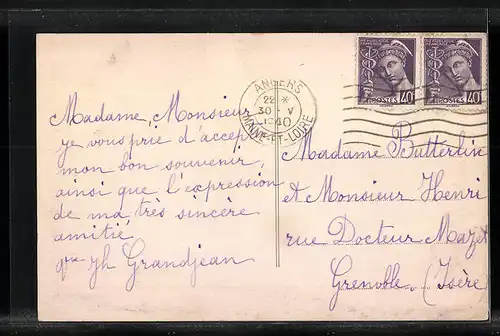 RÉPUBLIQUE FRANÇAISE
RÉPUBLIQUE FRANÇAISE
POSTES 40
POSTES 40
ANGERS
22 *
30 - V
1940
MAINE-ET-LOIRE
Madame, Monsieur
je vous prie d'accep
mon bon souvenir,
ainsi que l'expression
de ma très sincère
amitié
Jh Grandjean
Madame Butterlin
et Monsieur Henri
rue Docteur Mazet
Grenoble. (Isère)